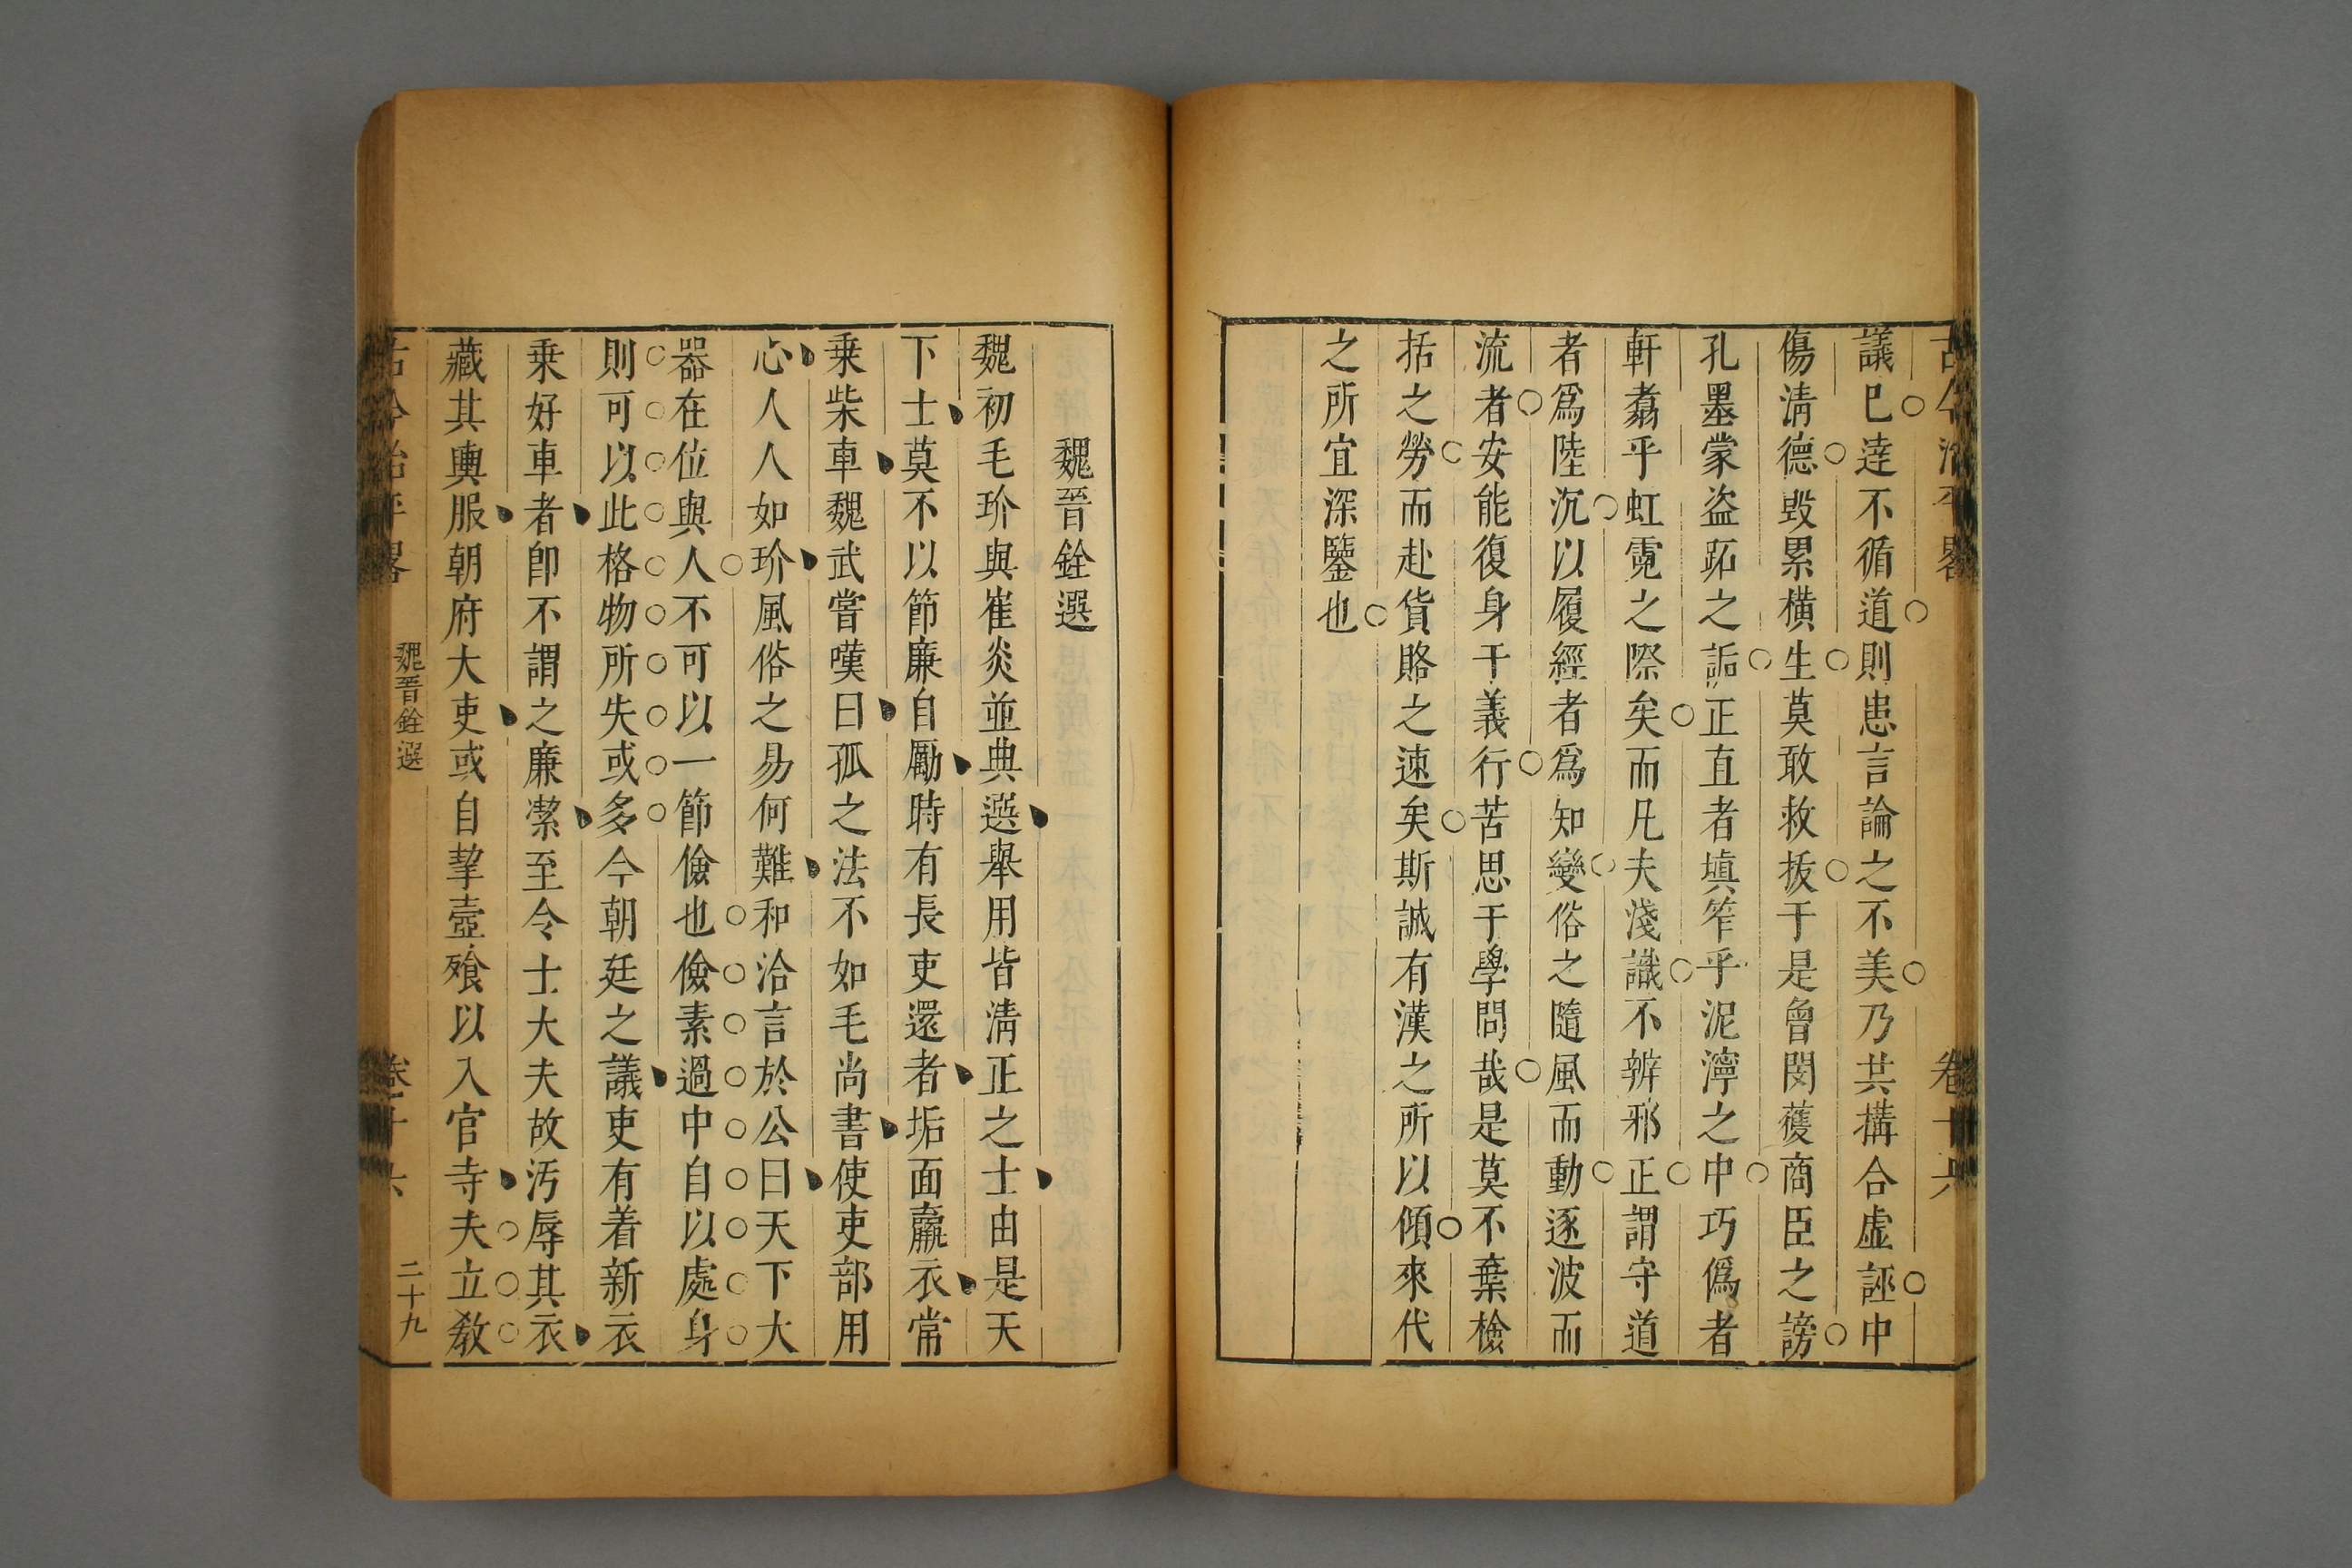 古今治平畧
卷十六
議巳逹不循道則患言論之不美乃共搆合虛誣中
傷清德毀累橫生莫敢救扳于是曾閔獲商臣之謗
孔墨蒙盜跖之詬正直者塡笮乎泥濘之中巧僞者
軒翥乎虹霓之際矣而凡夫淺識不辨邪正謂守道
者爲陸沉以履經者爲知變俗之隨風而動逐波而
流者安能復身于義行苦思于學問哉是莫不棄檢
括之勞而赴貨賂之速矣斯誠有漢之所以傾來代
之所宜深鑒也
魏晉銓選
魏初毛玠與崔炎並典選舉用皆清正之士由是天
下士莫不以節廉自勵時有長吏還者垢面羸衣常
乗柴車魏武嘗嘆曰孤之法不如毛尚書使吏部用
心人人如玠風俗之易何難和洽言於公曰天下大
器在位與人不可以一節儉也儉素過中自以處身
則可以此格物所失或多今朝廷之議吏有着新衣
乗好車者卽不謂之廉潔至令士大夫故汚辱其衣
藏其輿服朝府大吏或自挈壺飱以入官寺夫立敎
古今治平畧
魏晉銓選
卷十六
二十九